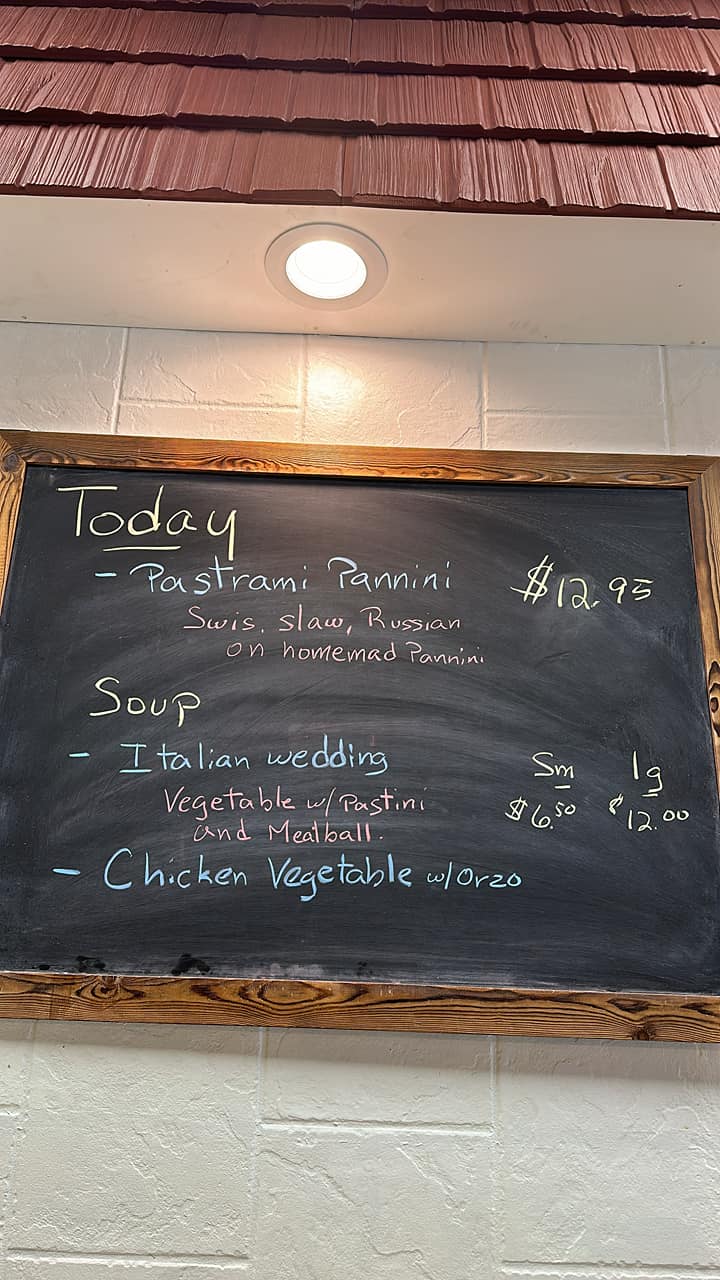 Today
- Pastrami Pannini $12.95
Swis, slaw, Russian
on homemad Pannini
Soup
- Italian wedding Sm lg
Vegetable w/ Pastini $6.50 $12.00
and Meatball.
- Chicken Vegetable w/Orzo